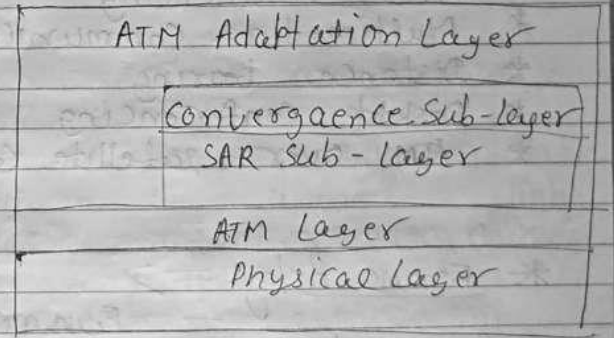 ATM Adaptation Layer
Convergaence Sub-layer
SAR Sub-layer
ATM Layer
Physical Layer